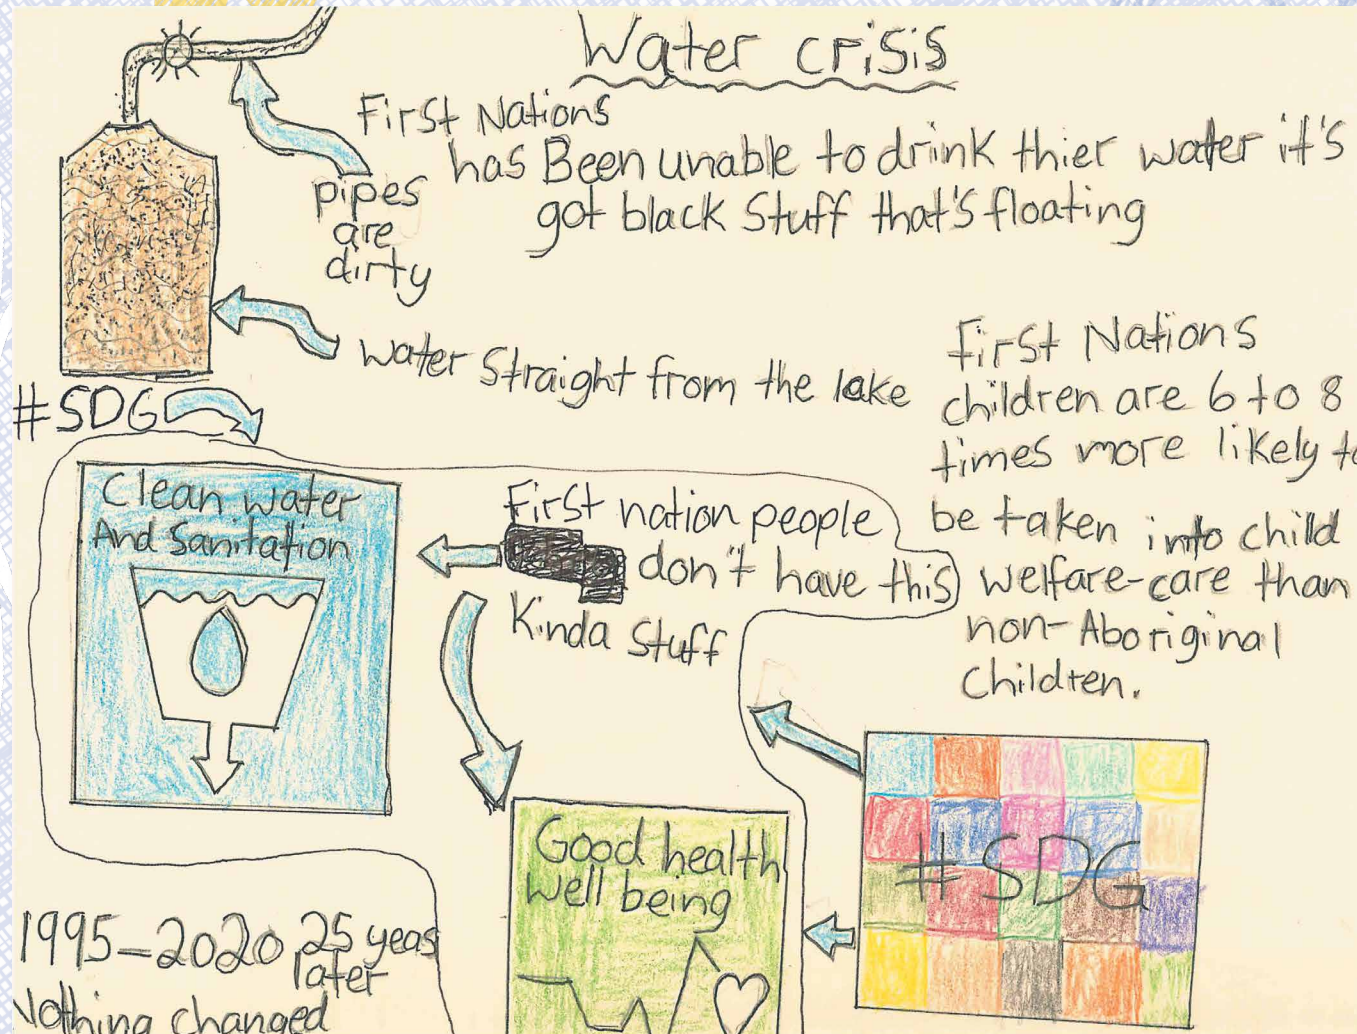 Water crisis
First Nations
has Been unable to drink thier water it's
got black Stuff that's floating
pipes
are
dirty
water Straight from the lake
First Nations
children are 6 to 8
times more likely to
be taken into child
welfare-care than
non-Aboriginal
children.
#SDG
Clean water
And Sanitation
First nation people
don't have this
Kinda Stuff
Good health
well being
#SDG
1995-2020 25 yeas
later
Nothing changed